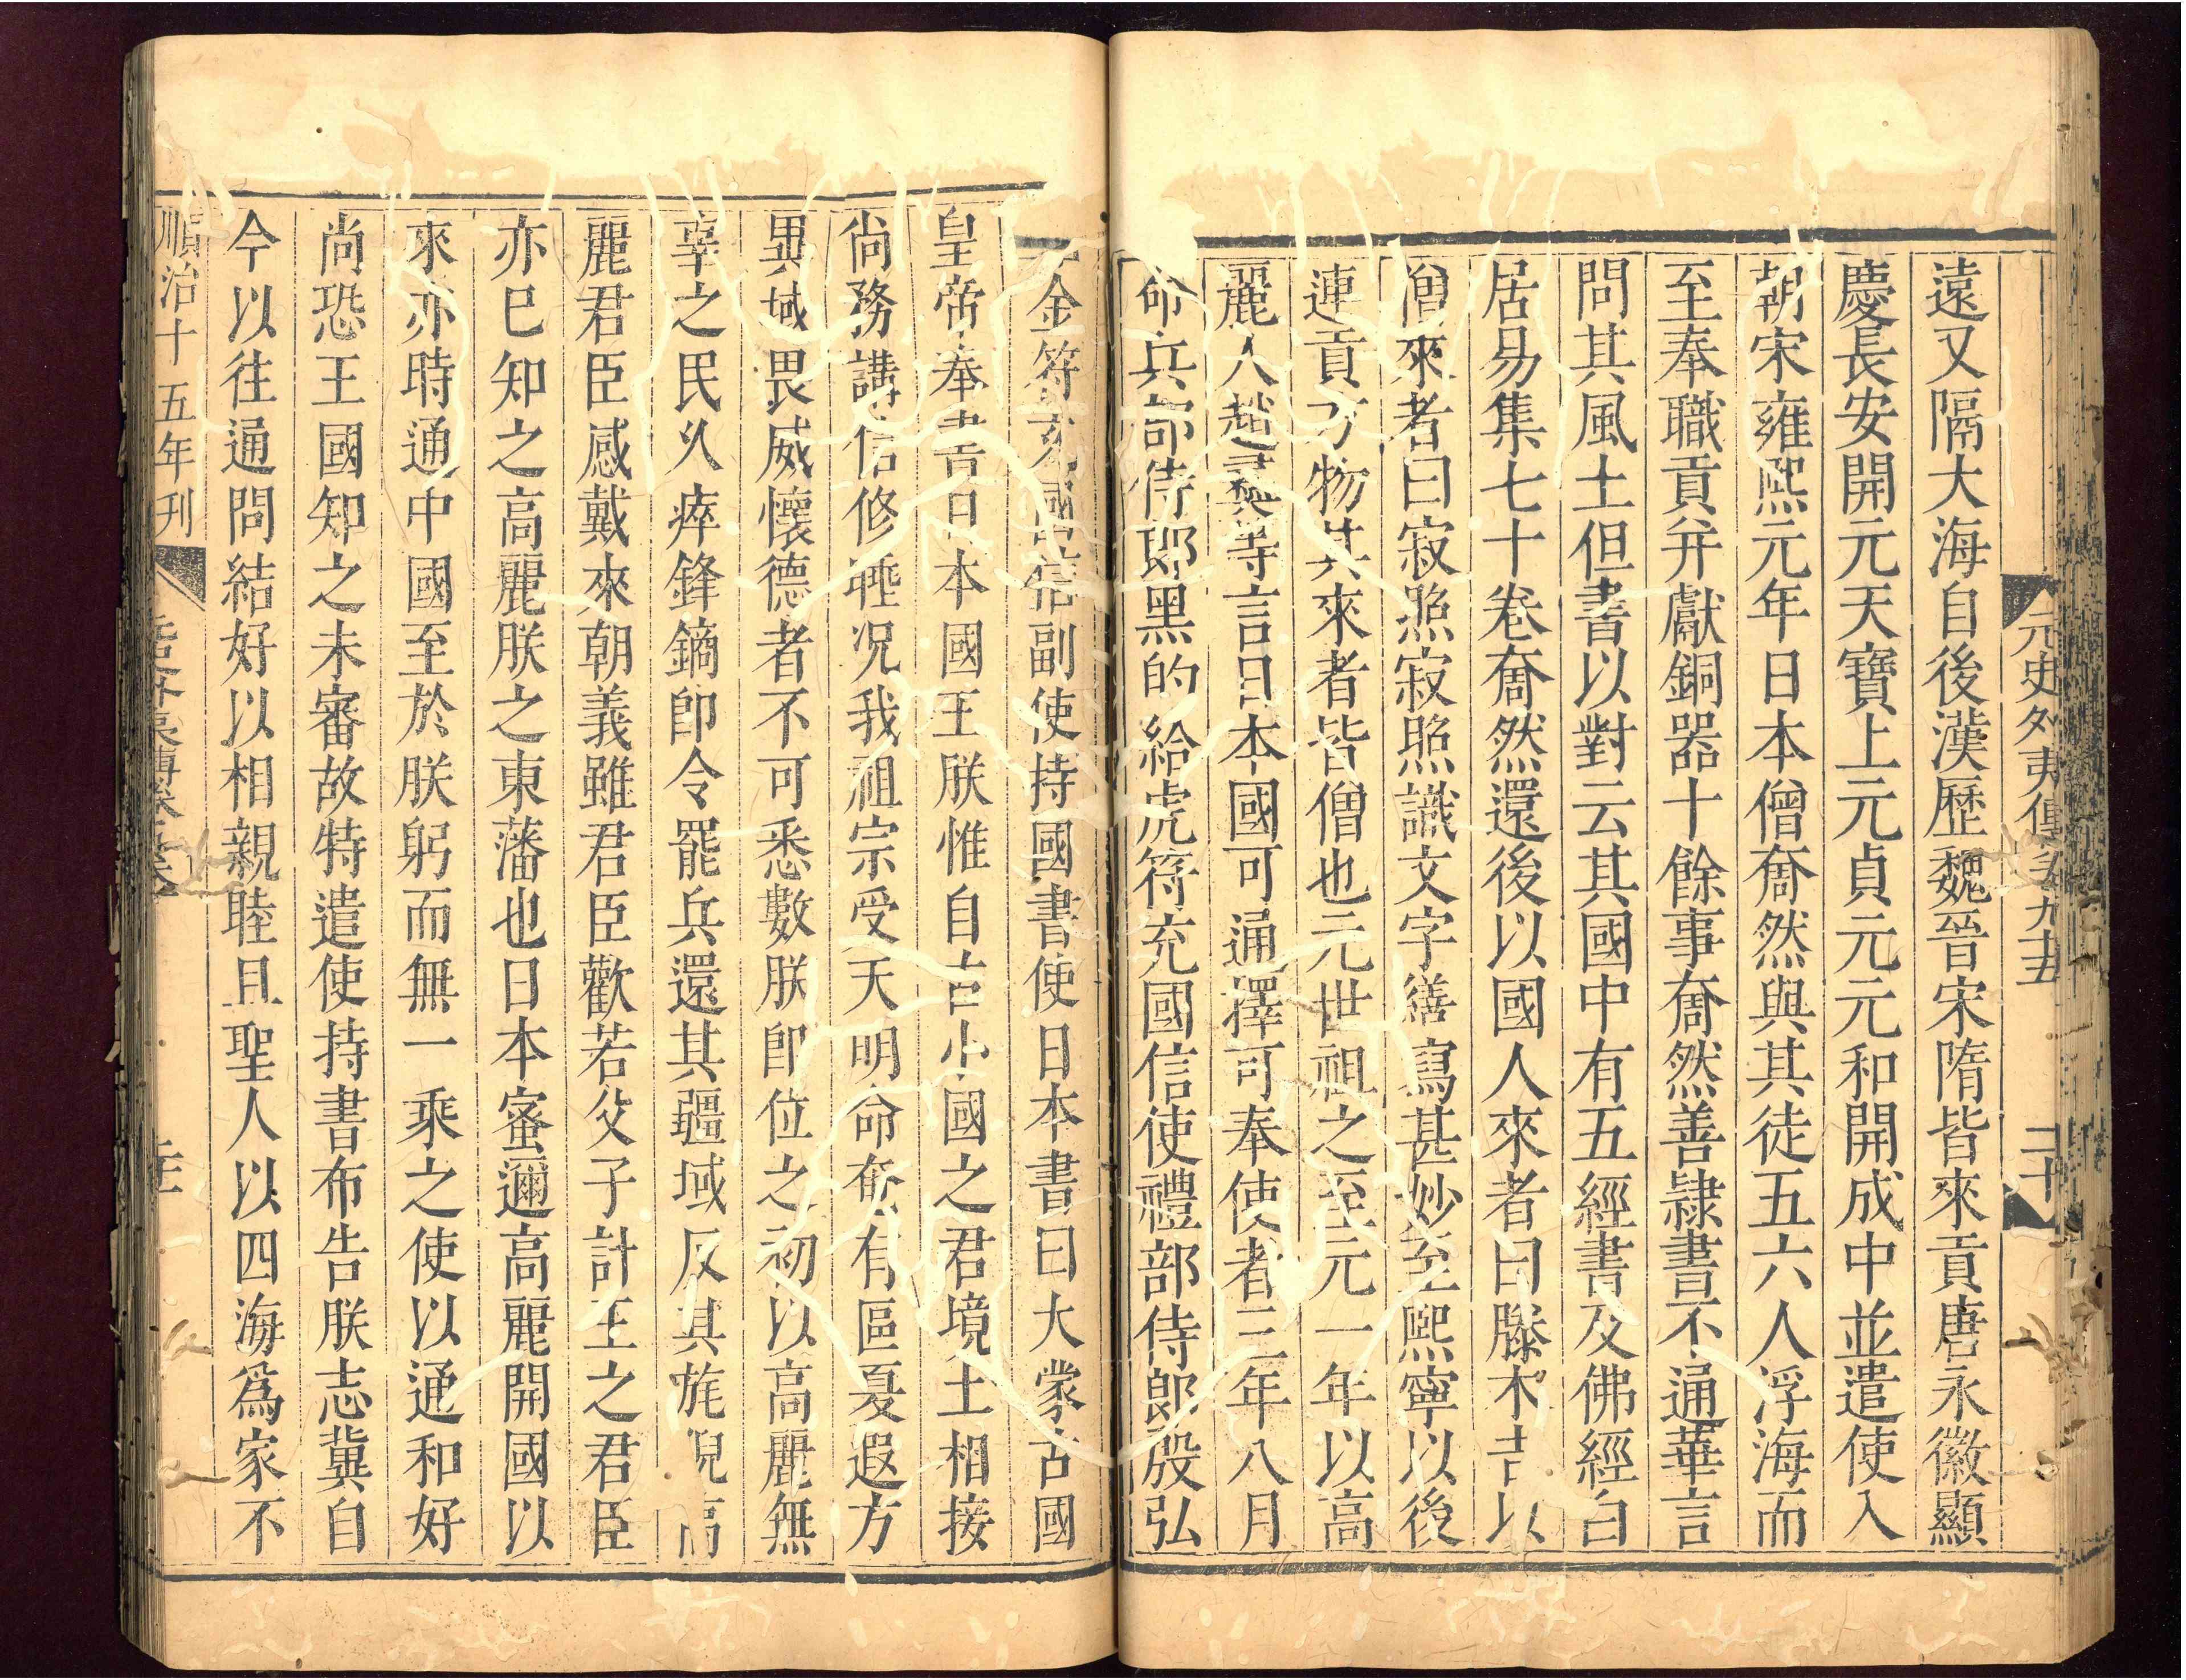 元史外夷傳卷九十五
二十
遠又隔大海自後漢歷魏晉宋隋皆來貢唐永徽顯
慶長安開元天寶上元貞元元和開成中並遣使入
朝宋雍熙元年日本僧奝然與其徒五六人浮海而
至奉職貢并獻銅器十餘事奝然善隷書不通華言
問其風土但書以對云其國中有五經書及佛經白
居易集七十卷奝然還後以國人來者曰滕木吉以
僧來者曰寂照寂照識文字繕寫甚妙至熙寧以後
連貢方物其來者皆僧也元世祖之至元一年以高
麗人趙彞等言日本國可通擇可奉使者三年八月
命兵部侍郎黑的給虎符充國信使禮部侍郎殷弘
金符充國信副使持國書使日本書曰大蒙古國
皇帝奉書日本國王朕惟自古小國之君境土相接
尚務講信修睦况我祖宗受天明命奄有區夏遐方
異域畏威懷德者不可悉數朕卽位之初以高麗無
辜之民乆瘁鋒鏑卽令罷兵還其疆域反其旄倪高
麗君臣感戴來朝義雖君臣歡若父子計王之君臣
亦巳知之高麗朕之東藩也日本蜜邇高麗開國以
來亦時通中國至於朕躬而無一乘之使以通和好
尚恐王國知之未審故特遣使持書布告朕志冀自
今以往通問結好以相親睦且聖人以四海爲家不
順治十五年刊